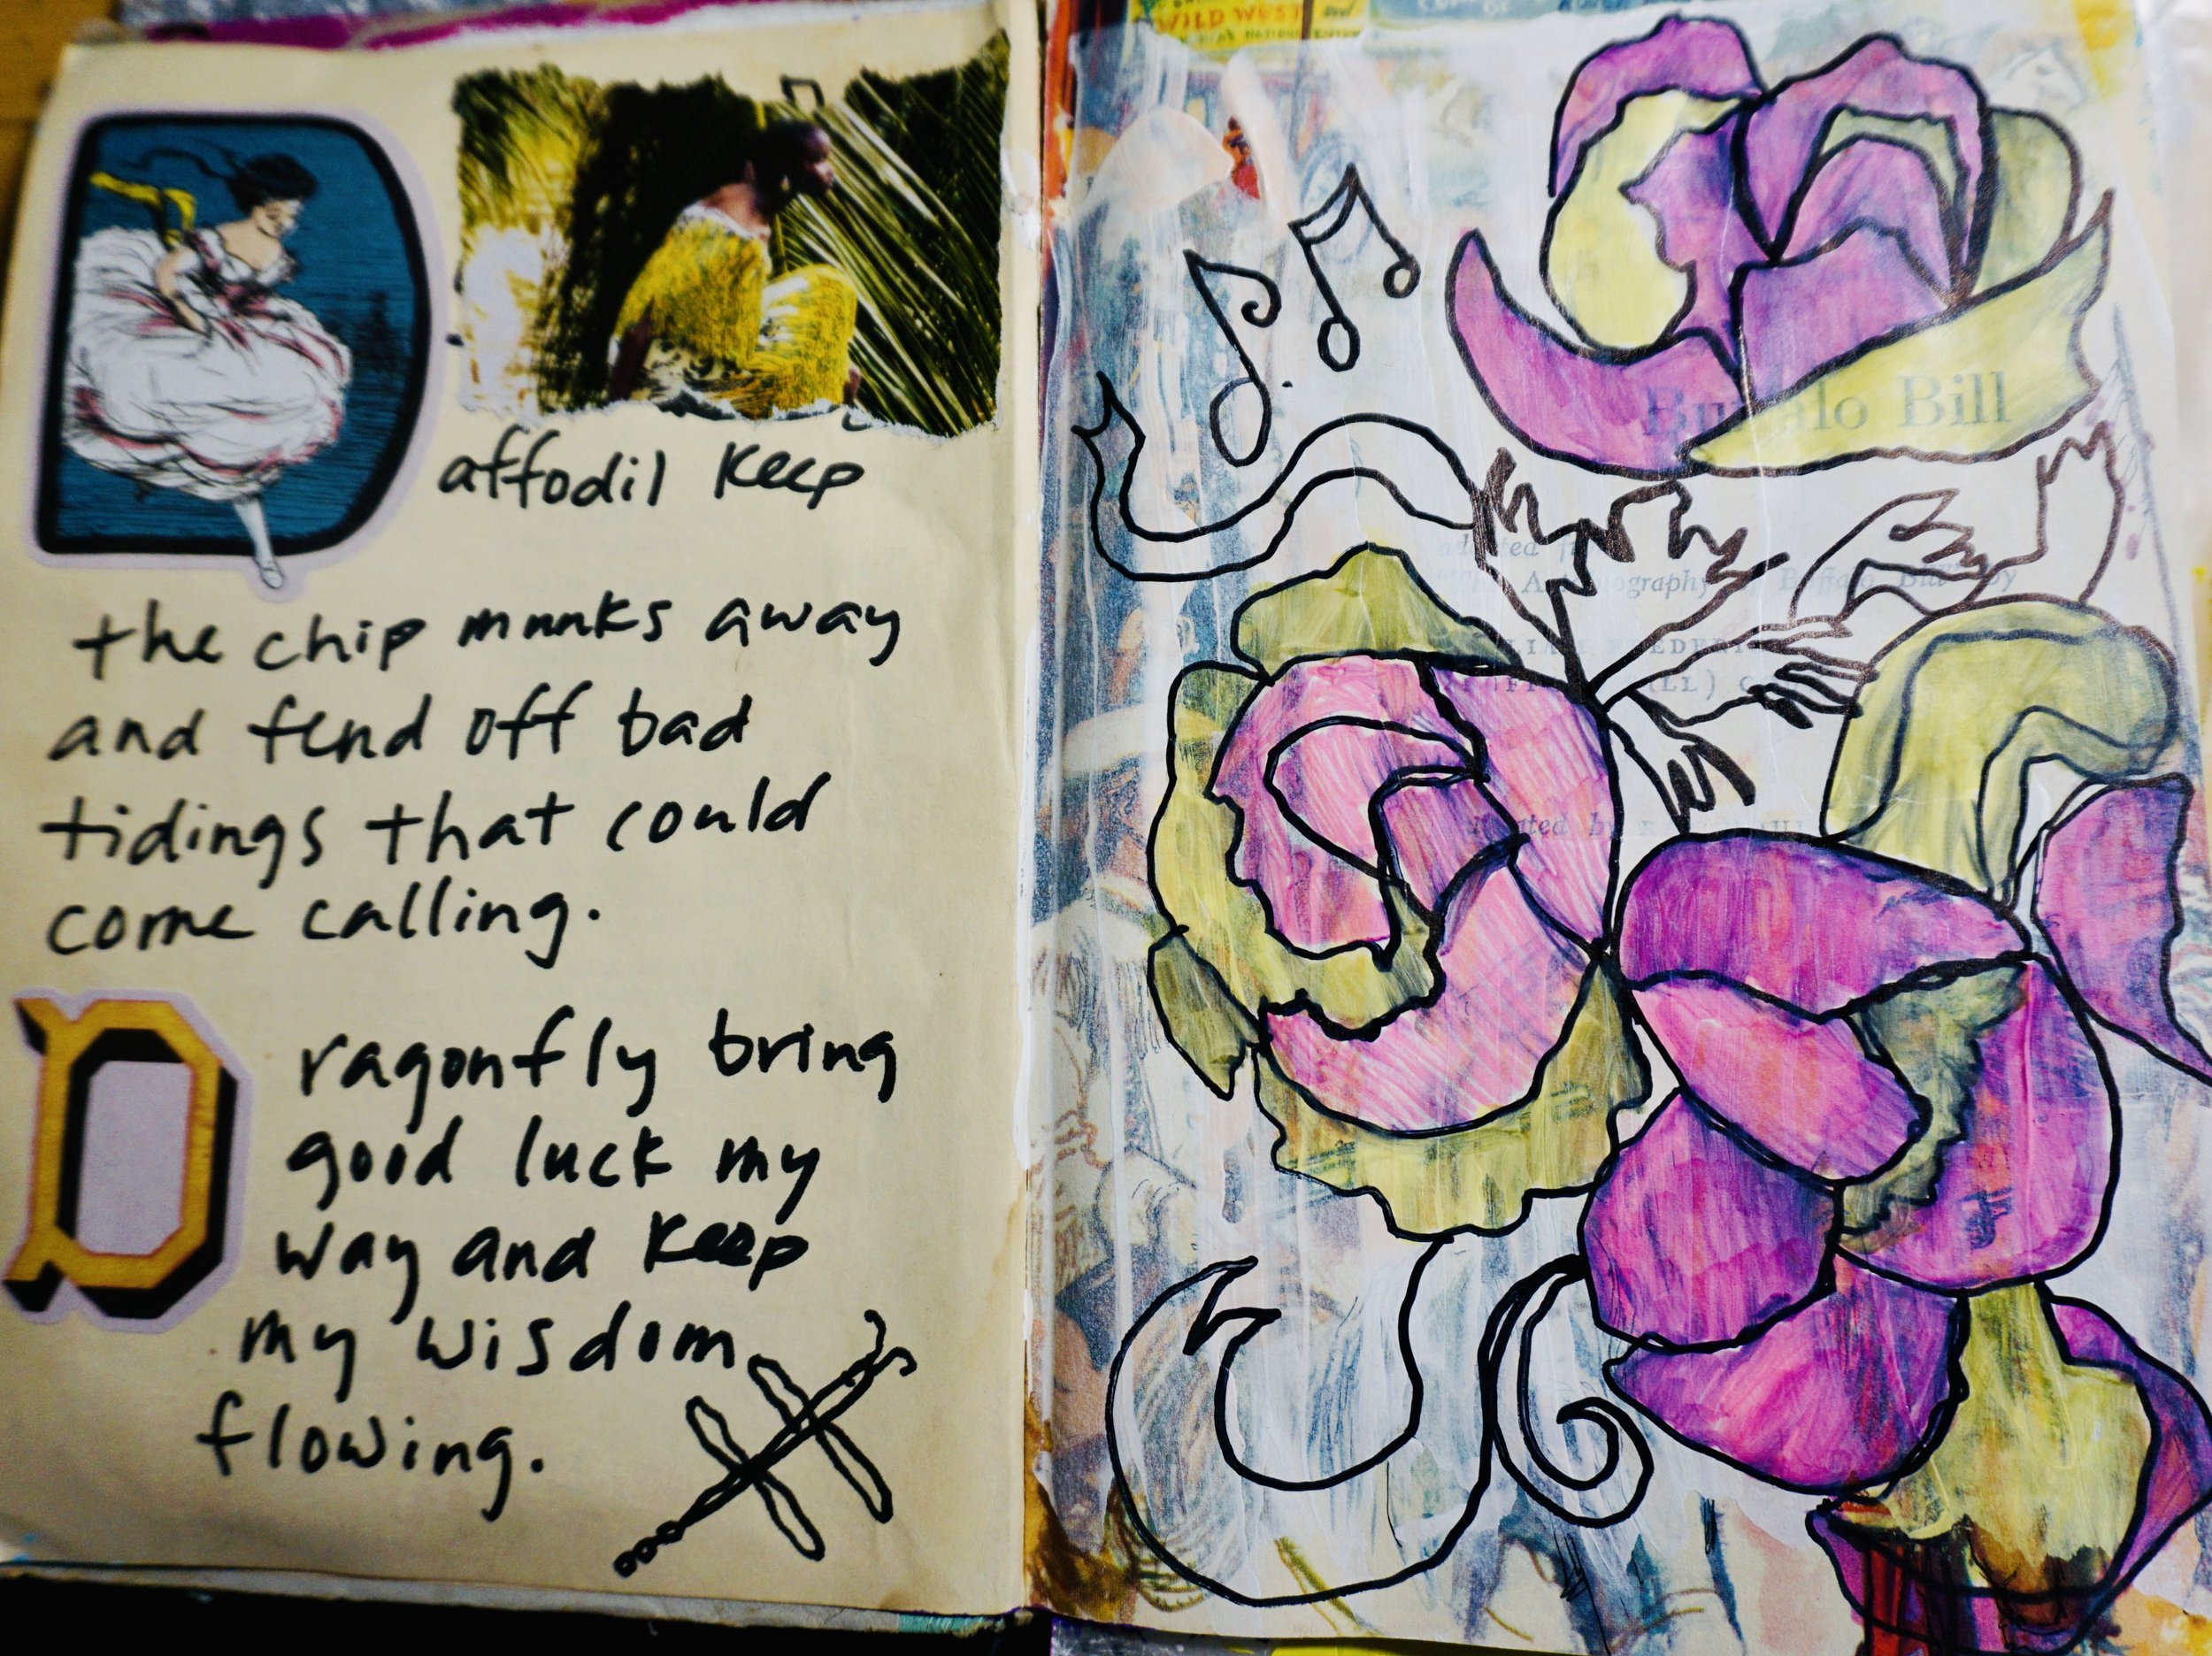 Daffodil Keep
the chip munks away
and fend off bad
tidings that could
come calling.
Dragonfly bring
good luck my
way and Keep
my wisdom
flowing.
WILD WEST and
Buffalo Bill